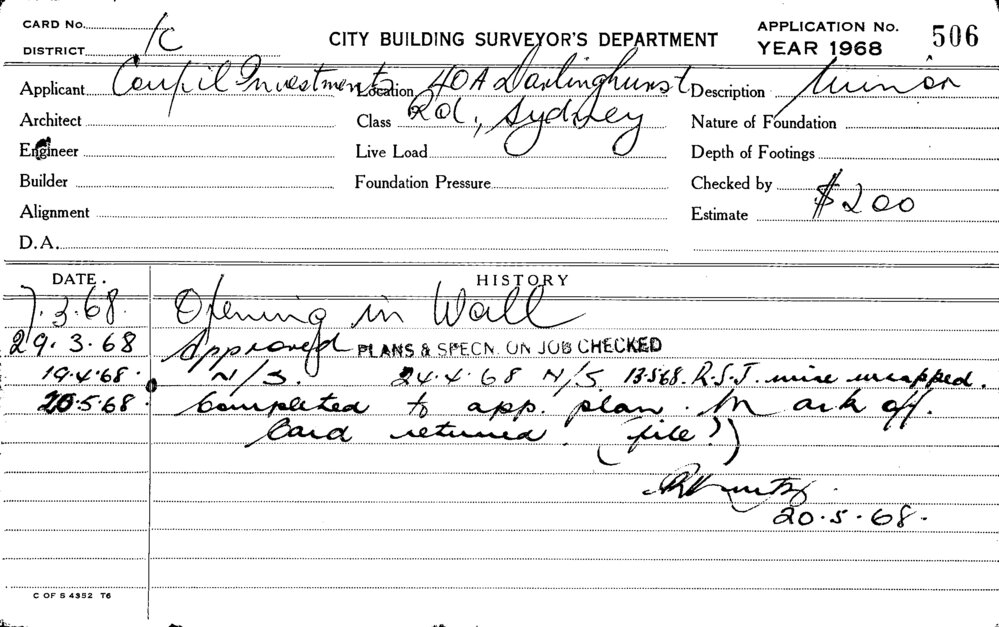 CARD No.
DISTRICT 1c
CITY BUILDING SURVEYOR'S DEPARTMENT
APPLICATION No. 506
YEAR 1968
Applicant Investments Location 40A Darlinghurst Description Minor
Architect Class Rd, Sydney Nature of Foundation
Engineer Live Load Depth of Footings
Builder Foundation Pressure Checked by
Alignment Estimate $200
D.A.
DATE. HISTORY
7.3.68. Opening in Wall
29.3.68 Approved PLANS & SPECN. ON JOB CHECKED
19.4.68. N/S. 24.4.68 N/S. 13.5.68. R.S.J. wire wrapped.
20.5.68. Completed to app. plan. Mark off.
Card returned. (file?)
20.5.68.
C OF S 4352 T6